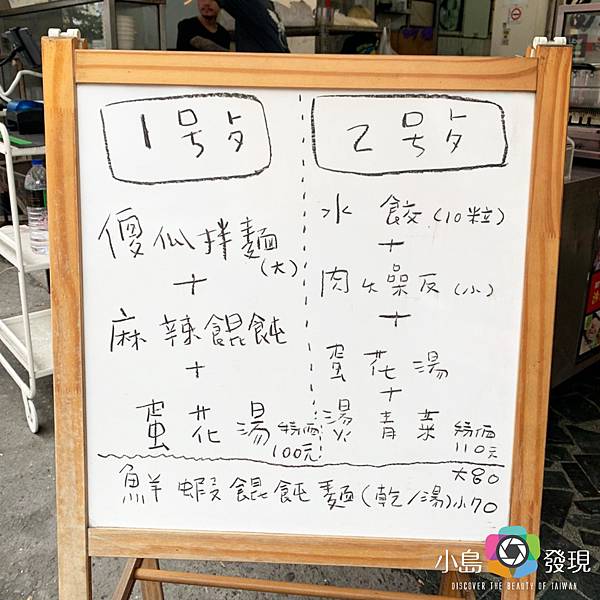 1號夕
2號夕
傻瓜拌麵
(大)
+
麻辣餛飩
+
蛋花湯 特価
100元
水餃(10粒)
+
肉燥反(小)
+
蛋花湯
+
燙青菜 特価
110元
鮮蝦餛飩麵(乾/湯) 大80
小70
小島發現
DISCOVER THE BEAUTY OF TAIWAN